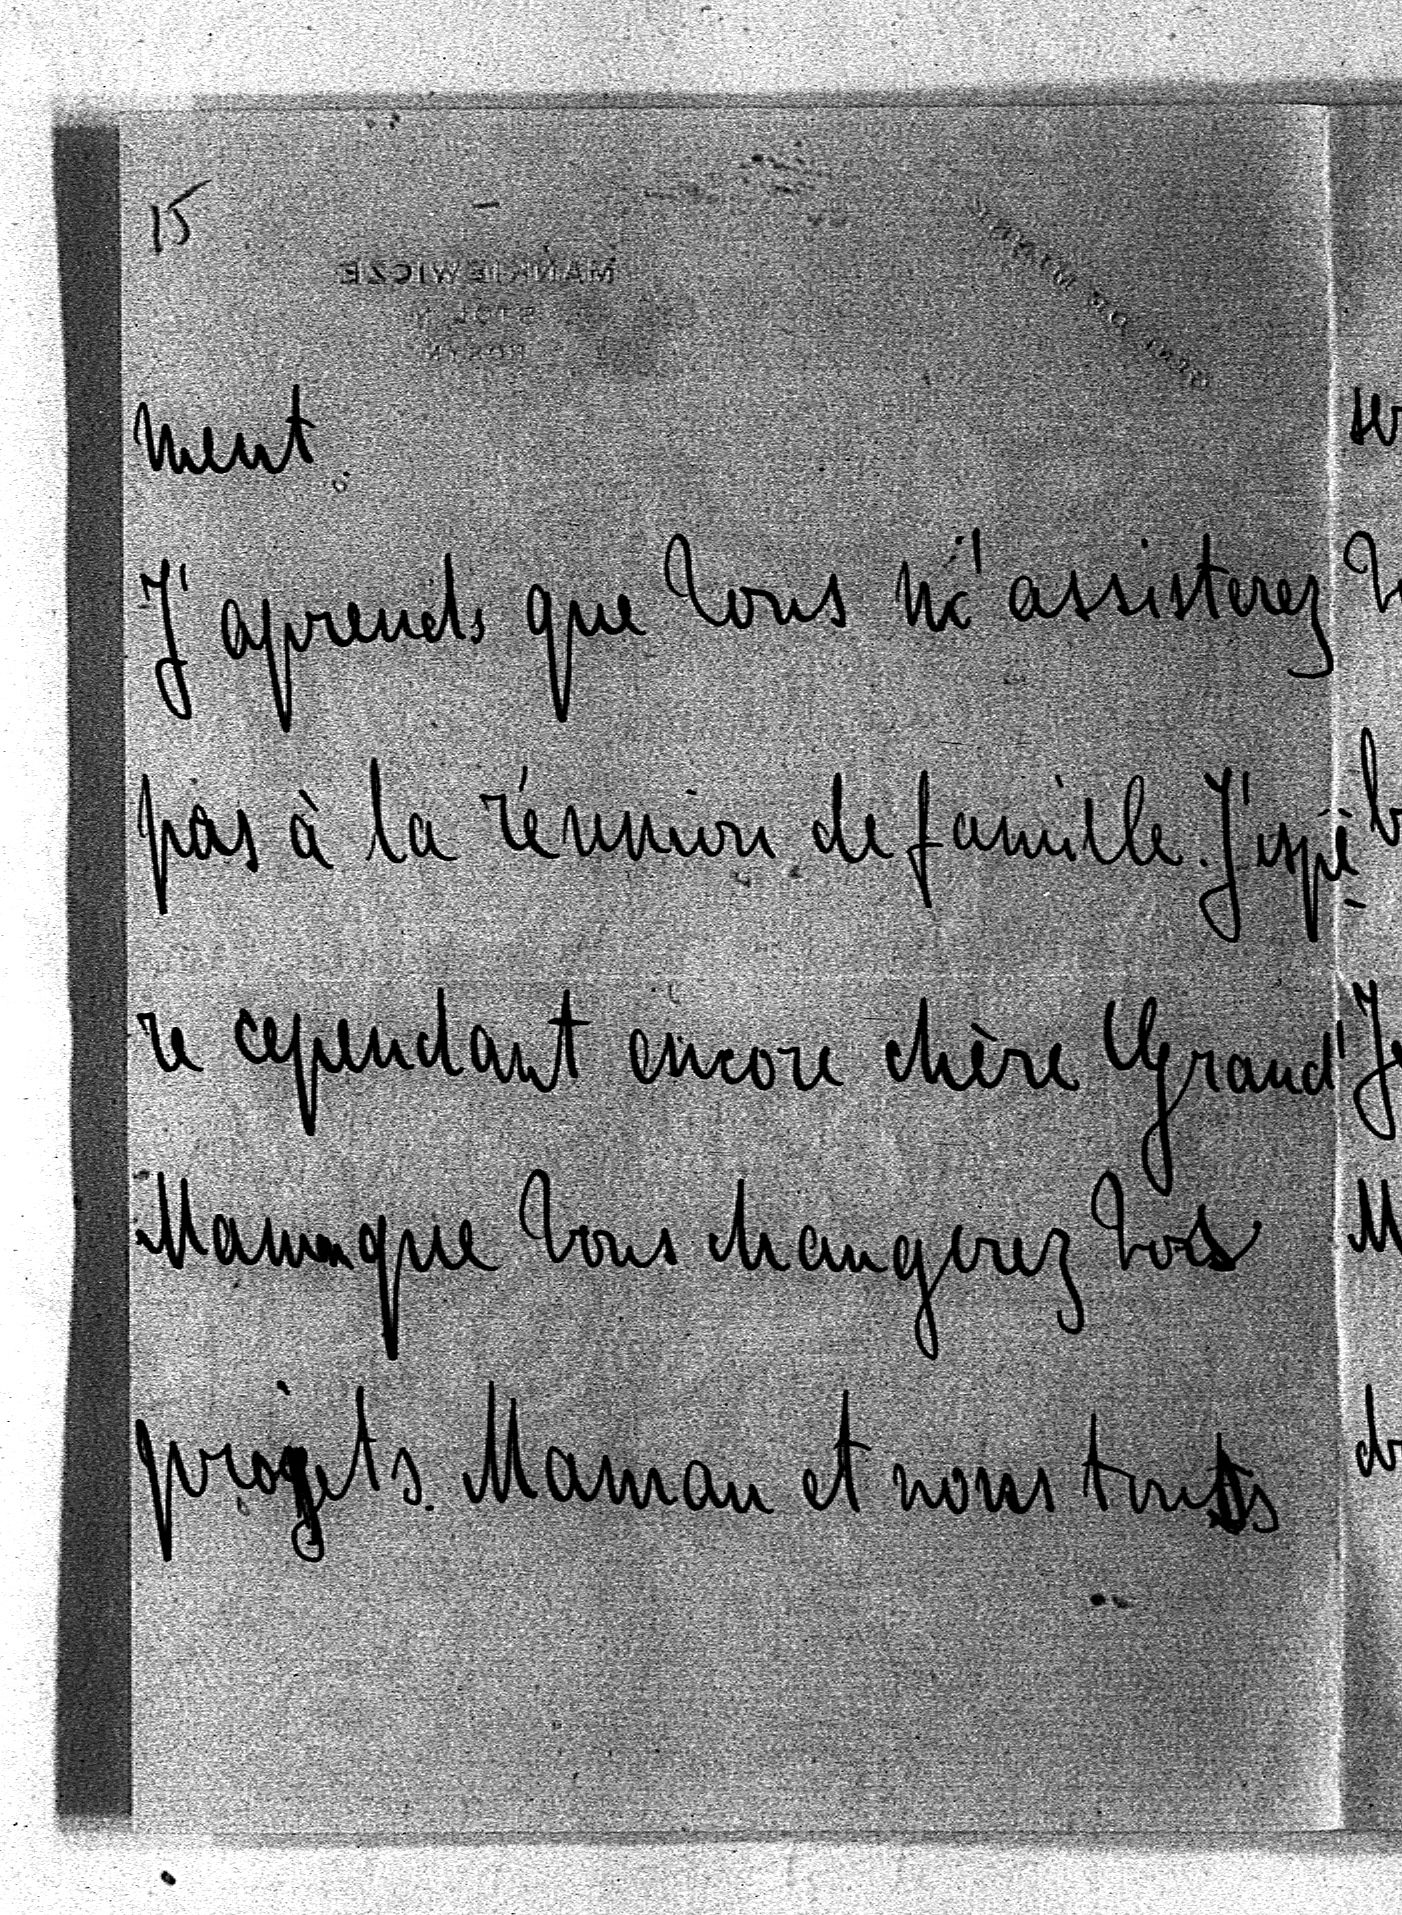 15
MANKIEWICZE
ment.
J'aprends que Vous n'assisterez
pas à la réunion de famille. J'espè-
re cependant encore chère Grand'
Maman que Vous changerez Vos
projets. Maman et nous tous